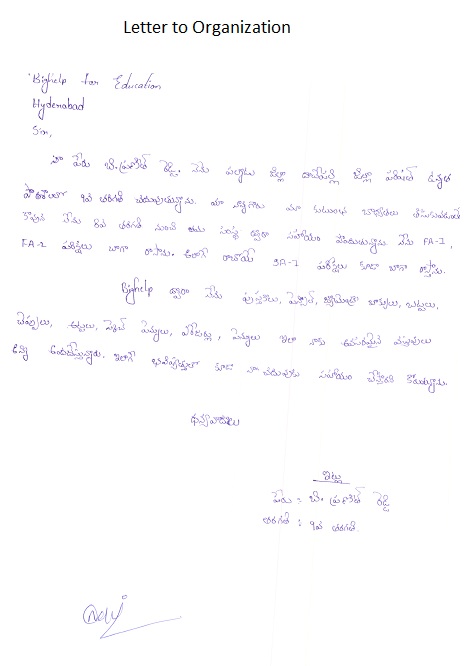 Letter to Organization
Bighelp for Education
Hyderabad
Sir,
నా పేరు బి. ప్రణీత్ రెడ్డి. నేను పల్నాడు జిల్లా దాచేపల్లి జిల్లా పరిషత్ ఉన్నత
పాఠశాలలో 9వ తరగతి చదువుతున్నాను. మా నాన్నగారు మా కుటుంబ బాధ్యతలు
నేను 8వ తరగతి నుంచి ఈ సంస్థ ద్వారా సహాయం పొందుతున్నాను. నేను FA-1,
FA-2 పరీక్షలు బాగా రాసాను. అలాగే రాబోయే SA-1 పరీక్షలు కూడా బాగా రాస్తాను.
Bighelp ద్వారా నేను పుస్తకాలు, పెన్సిల్, జ్యామెట్రీ బాక్సులు, బట్టలు,
చెప్పులు, అట్టలు, స్కెచ్ పెన్నులు, ఎరేజర్లు, పెన్నులు ఇలా నాకు అవసరమైన వస్తువులు
అన్ని అందజేస్తున్నారు. ఇలాగే భవిష్యత్తులో కూడా నా చదువుకు సహాయం చేస్తారని కోరుతున్నాను.
ధన్యవాదాలు
ఇట్లు
పేరు : బి. ప్రణీత్ రెడ్డి
తరగతి : 9వ తరగతి.